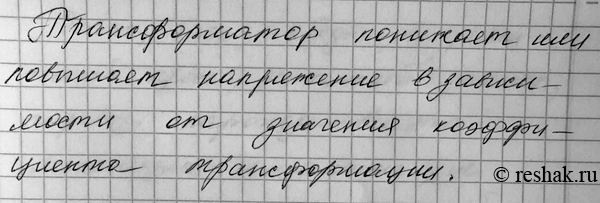 Трансформатор понижает или
повышает напряжение в зависи-
мости от значения коэффи-
циента трансформации.
© reshak.ru